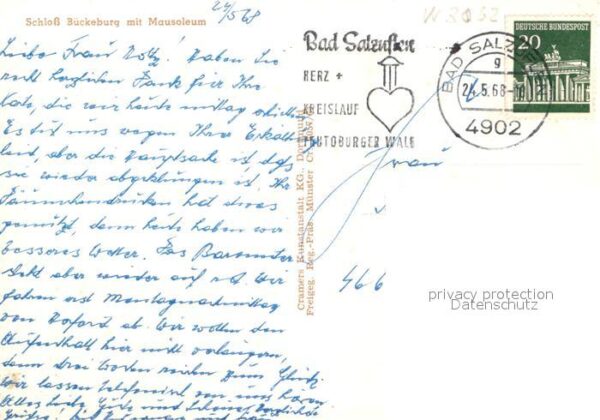 Schloß Bückeburg mit Mausoleum
24/5 68
Liebe Frau Notz! Haben Sie
recht herzlichen Dank für Ihre
Karte, die wir heute mittag erhielten
Es tut uns wegen Ihrer Erkält.
leid, aber die Hauptsache ist, daß
sie wieder abgeklungen ist. Ihr
Däumchendrücken hat etwas
genützt, denn heute haben wir
besseres Wetter. Das Barometer
steht aber wieder auf Wir
fahren erst Montagnachmittag
von ab. Wir wollen den
Aufenthalt hier nicht verlängern,
denn drei Wochen reichen zum
Wir lassen telefonisch von uns hören
Alles Gute und
Grüße,
Cramers Kunstanstalt KG., Dortmund
Freigeg. Reg.-Präs. Münster
Bad Salzuflen
HERZ +
KREISLAUF
TEUTOBURGER WALD
BAD SALZUFLEN
g
24.5.68
4902
DEUTSCHE BUNDESPOST
20
Frau
466
privacy protection
Datenschutz